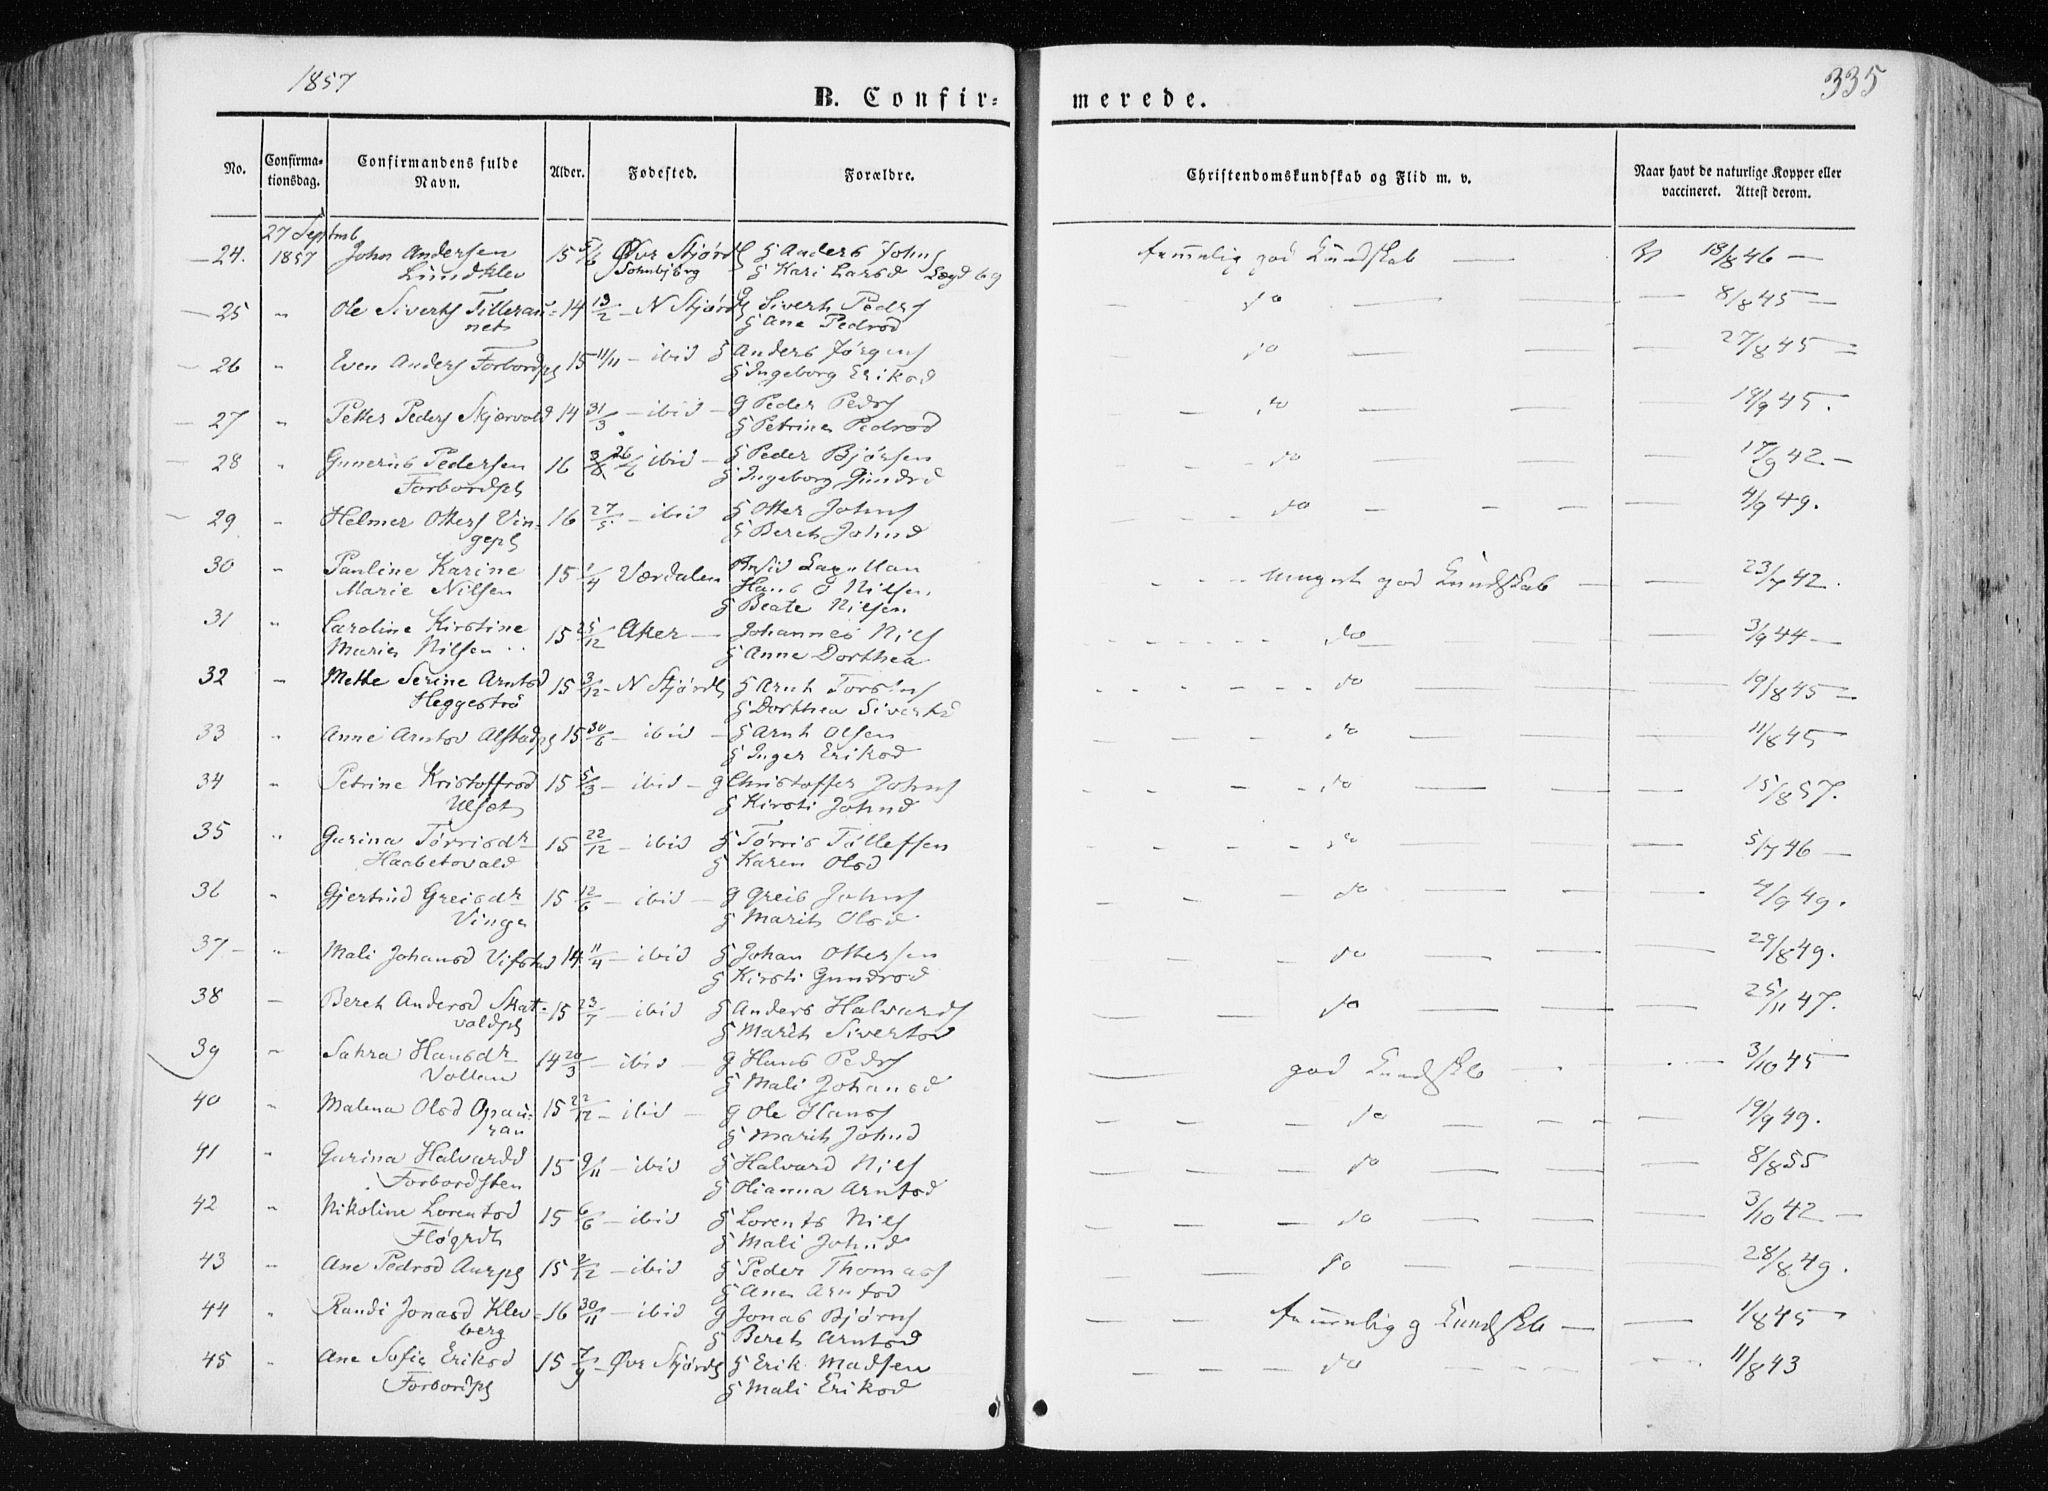 1857
B. Confir=
merede.
335
No.
Confirma=
tionsdag.
Confirmandens fulde
Navn.
Alder.
Fødested.
Forældre.
Christendomskundskab og Flid m. v.
Naar havt de naturlige Kopper eller
vaccineret. Attest derom.
27 Septmb
24. 1857 John Andersen 15 5/6 Øvr Stjørd § Anders Johns temmelig god Kundskab — 18/8 46 —
Lundklev § Kari Larsd Lægd 69
25 " Ole Siverts Tillerau= 14 13/2 — N Stjørd g Siverth Peders do 8/8 45 —
nets § Ane Pedrsd
26 " Even Anders Forbordpl 15 11/11 — ibid § Anders Jørgens do 27/8 45 —
§ Ingeborg Eriksd
27 " Petter Peders Skjervold 14 31/3 — ibid — g Peder Pedrs do 19/9 45.
§ Petrine Pedrsd
28 " Gunerus Pedersen 16 3/8 26/6 ibid — § Peder Bjørsen do 17/9 42 —
Forbordspl § Ingeborg Gundrd
29 " Helmer Otters Vin= 16 27/5 — ibid § Otter Johns do 4/9 49.
gepl § Bereth Johnd
30 " Pauline Karine 15 1/4 Værdalen
Marie Nilsen Hans O Nilsen meget god Kundskab — 23/7 42.
§ Beate Nilsen
31 " Caroline Kirstine 15 25/12 Aker — Johannes Nils do 3/9 44 —
Marie Nilsen § Anne Dorthea
32 " Mette Serine Arntsd 15 3/12 — N Stjørd § Arnt Torstns do 19/8 45 —
Heggestrø § Dorthea Sivertsd
33 " Anne Arntsd Alstadpl 15 30/6 — ibid — § Arnt Olsen do 11/8 45
§ Inger Eriksd
34 " Petrine Kristoffrsd 15 5/3 — ibid — g Christoffer Johns do 15/8 57.
Ulset § Kirsti Johnd
35 " Gurina Tørrisdr 15 22/12 — ibid § Tørris Tølleffsen do 5/7 46 —
Haabetsvald § Karen Olsd
36 " Gjertrud Greisdr 15 12/6 — ibid — g Greis Johns do 4/9 49.
Vinge § Marit Olsd
37 — " Mali Johansd Vifstad 14 11/4 — ibid § Johan Ottersen do 29/8 49.
§ Kirsti Gundrsd
38 — Bereth Andersd Skat= 15 23/7 — ibid § Anders Halvards do 25/11 47.
valdpl § Marith Sivertsd
39 " Sahra Hansdr 14 20/3 — ibid — g Hans Pedrs god Kundskb 3/10 45
Vollan § Mali Johansd
40 " Malena Olsd Opau= 15 22/12 — ibid — g Ole Hans do 19/9 49.
ran § Marith Johnd
41 " Gurina Halvardd 15 9/11 — ibid § Halvard Nils do 8/8 55
Forbordsten § Olianna Arntsd
42 " Nikoline Lorentsd 15 6/6 — ibid § Lorents Nils do 3/10 42 —
Fløgstb § Mali Johnd
43 " Ane Pedrsd Aurpl 15 2/12 — ibid § Peder Thomas do 28/8 49.
§ Ane Arntsd
44 " Randi Jonasd Klev= 16 30/11 — ibid g Jonas Bjørns temmelig g Kundskb — 1/8 45
berg § Bereth Arntsd
45 " Ane Sofie Eriksd 15 7/9 — Øvr Stjørd § Erik Madsen do 11/8 43
Forbordpl § Mali Eriksd